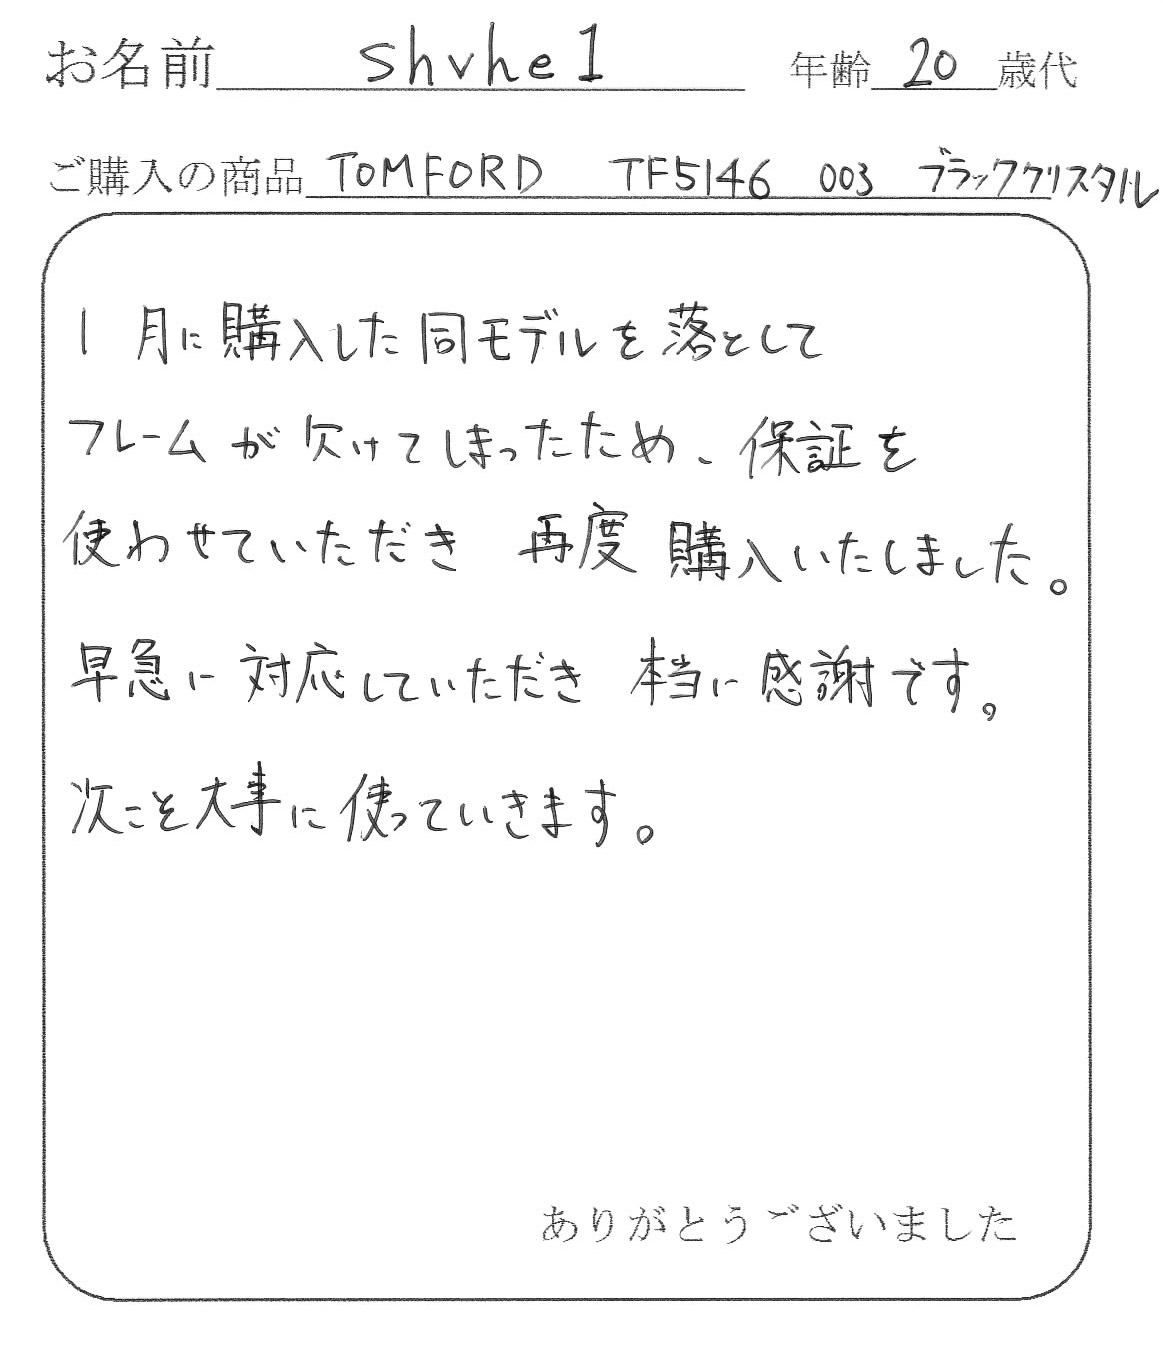 お名前 shvhe1 年齢 20 歳代
ご購入の商品 TOMFORD TF5146 003 ブラッククリスタル
1月に購入した同モデルを落として
フレームが欠けてしまったため、保証を
使わせていただき 再度 購入いたしました。
早急に対応していただき 本当に感謝です。
次こそ大事に使っていきます。
ありがとうございました